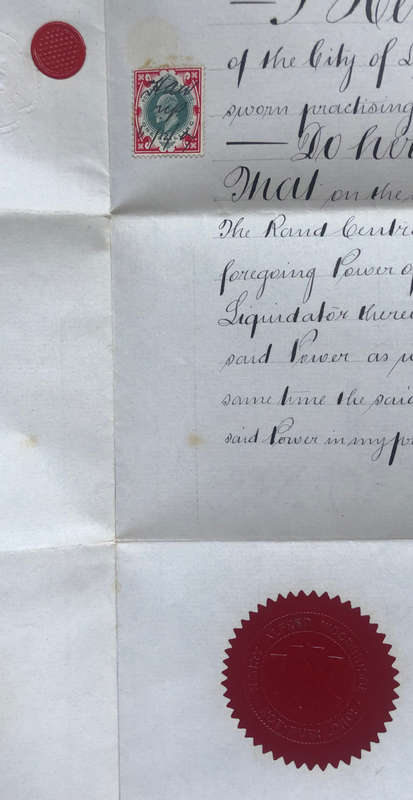 I He
of the City of L
sworn practising
Do her
That on the
The Rand Centr
foregoing Power o
Liquidator there
said Power as w
same time the said
said Power in my pr